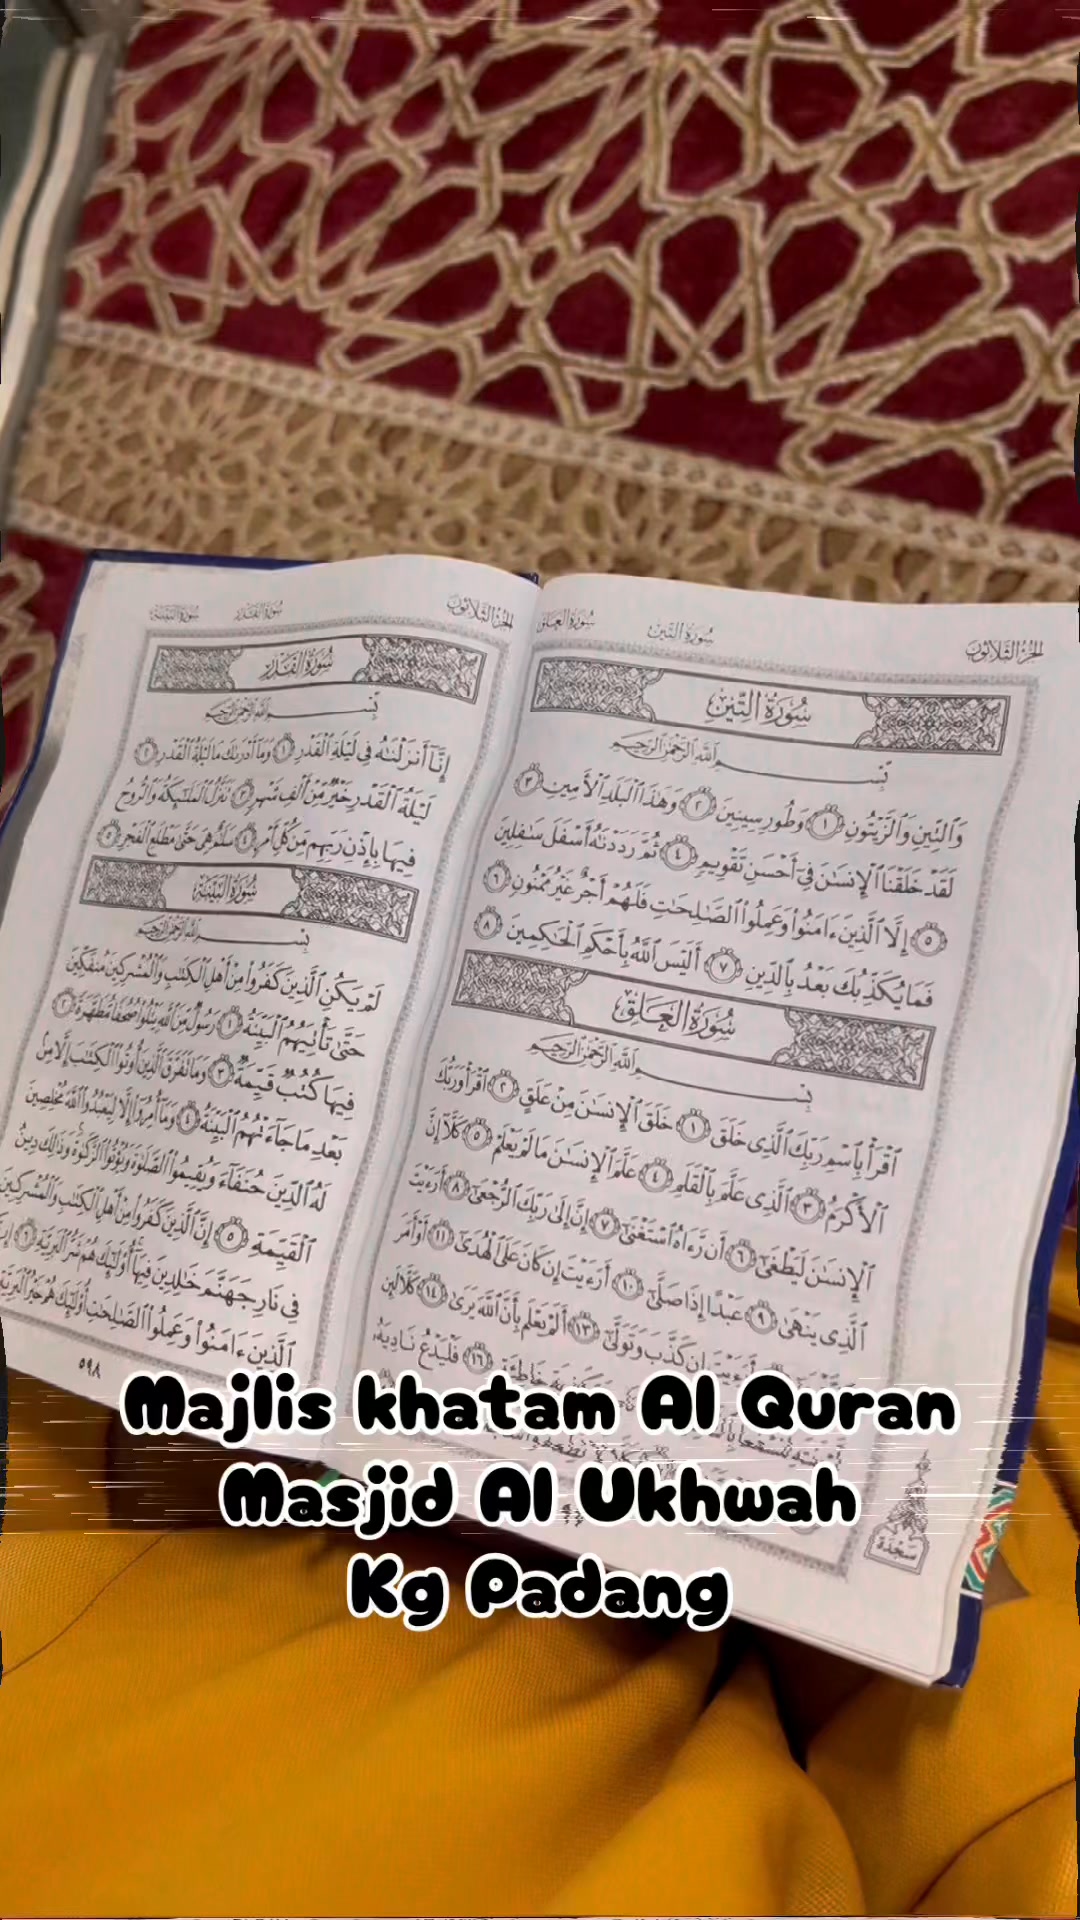 الجزء الثلاثون
سورة التين
سورة العلق
سُورَةُ التِّينِ
بِسْمِ اللَّهِ الرَّحْمَٰنِ الرَّحِيمِ
وَٱلتِّينِ وَٱلزَّيْتُونِ ١ وَطُورِ سِينِينَ ٢ وَهَٰذَا ٱلْبَلَدِ ٱلْأَمِينِ ٣
لَقَدْ خَلَقْنَا ٱلْإِنسَٰنَ فِىٓ أَحْسَنِ تَقْوِيمٍ ٤ ثُمَّ رَدَدْنَٰهُ أَسْفَلَ سَٰفِلِينَ
٥ إِلَّا ٱلَّذِينَ ءَامَنُوا۟ وَعَمِلُوا۟ ٱلصَّٰلِحَٰتِ فَلَهُمْ أَجْرٌ غَيْرُ مَمْنُونٍ ٦
فَمَا يُكَذِّبُكَ بَعْدُ بِٱلدِّينِ ٧ أَلَيْسَ ٱللَّهُ بِأَحْكَمِ ٱلْحَٰكِمِينَ ٨
سُورَةُ العَلَقِ
بِسْمِ اللَّهِ الرَّحْمَٰنِ الرَّحِيمِ
ٱقْرَأْ بِٱسْمِ رَبِّكَ ٱلَّذِى خَلَقَ ١ خَلَقَ ٱلْإِنسَٰنَ مِنْ عَلَقٍ ٢ ٱقْرَأْ وَرَبُّكَ
ٱلْأَكْرَمُ ٣ ٱلَّذِى عَلَّمَ بِٱلْقَلَمِ ٤ عَلَّمَ ٱلْإِنسَٰنَ مَا لَمْ يَعْلَمْ ٥ كَلَّآ إِنَّ
ٱلْإِنسَٰنَ لَيَطْغَىٰٓ ٦ أَن رَّءَاهُ ٱسْتَغْنَىٰٓ ٧ إِنَّ إِلَىٰ رَبِّكَ ٱلرُّجْعَىٰٓ ٨ أَرَءَيْتَ
ٱلَّذِى يَنْهَىٰ ٩ عَبْدًا إِذَا صَلَّىٰٓ ١٠ أَرَءَيْتَ إِن كَانَ عَلَى ٱلْهُدَىٰٓ ١١ أَوْ أَمَرَ
إِن كَذَّبَ وَتَوَلَّىٰٓ ١٣ أَلَمْ يَعْلَم بِأَنَّ ٱللَّهَ يَرَىٰ ١٤ كَلَّا لَئِن
خَاطِئَةٍ ١٦ فَلْيَدْعُ نَادِيَهُۥ
سَجْدَة
الجزء الثلاثون
سورة القدر
سورة البينة
سُورَةُ القَدْرِ
بِسْمِ اللَّهِ الرَّحْمَٰنِ الرَّحِيمِ
إِنَّآ أَنزَلْنَٰهُ فِى لَيْلَةِ ٱلْقَدْرِ ١ وَمَآ أَدْرَىٰكَ مَا لَيْلَةُ ٱلْقَدْرِ ٢
لَيْلَةُ ٱلْقَدْرِ خَيْرٌ مِّنْ أَلْفِ شَهْرٍ ٣ تَنَزَّلُ ٱلْمَلَٰٓئِكَةُ وَٱلرُّوحُ
فِيهَا بِإِذْنِ رَبِّهِم مِّن كُلِّ أَمْرٍ ٤ سَلَٰمٌ هِىَ حَتَّىٰ مَطْلَعِ ٱلْفَجْرِ ٥
سُورَةُ البَيِّنَةِ
بِسْمِ اللَّهِ الرَّحْمَٰنِ الرَّحِيمِ
لَمْ يَكُنِ ٱلَّذِينَ كَفَرُوا۟ مِنْ أَهْلِ ٱلْكِتَٰبِ وَٱلْمُشْرِكِينَ مُنفَكِّينَ
حَتَّىٰ تَأْتِيَهُمُ ٱلْبَيِّنَةُ ١ رَسُولٌ مِّنَ ٱللَّهِ يَتْلُوا۟ صُحُفًا مُّطَهَّرَةً ٢
فِيهَا كُتُبٌ قَيِّمَةٌ ٣ وَمَا تَفَرَّقَ ٱلَّذِينَ أُوتُوا۟ ٱلْكِتَٰبَ إِلَّا مِنۢ
بَعْدِ مَا جَآءَتْهُمُ ٱلْبَيِّنَةُ ٤ وَمَآ أُمِرُوٓا۟ إِلَّا لِيَعْبُدُوا۟ ٱللَّهَ مُخْلِصِينَ
لَهُ ٱلدِّينَ حُنَفَآءَ وَيُقِيمُوا۟ ٱلصَّلَوٰةَ وَيُؤْتُوا۟ ٱلزَّكَوٰةَ وَذَٰلِكَ دِينُ
ٱلْقَيِّمَةِ ٥ إِنَّ ٱلَّذِينَ كَفَرُوا۟ مِنْ أَهْلِ ٱلْكِتَٰبِ وَٱلْمُشْرِكِينَ
فِى نَارِ جَهَنَّمَ خَٰلِدِينَ فِيهَآ أُو۟لَٰٓئِكَ هُمْ شَرُّ ٱلْبَرِيَّةِ ٦
ٱلَّذِينَ ءَامَنُوا۟ وَعَمِلُوا۟ ٱلصَّٰلِحَٰتِ أُو۟لَٰٓئِكَ هُمْ خَيْرُ ٱلْبَرِيَّةِ
٥٩٨
Majlis khatam Al Quran
Masjid Al Ukhwah
Kg Padang